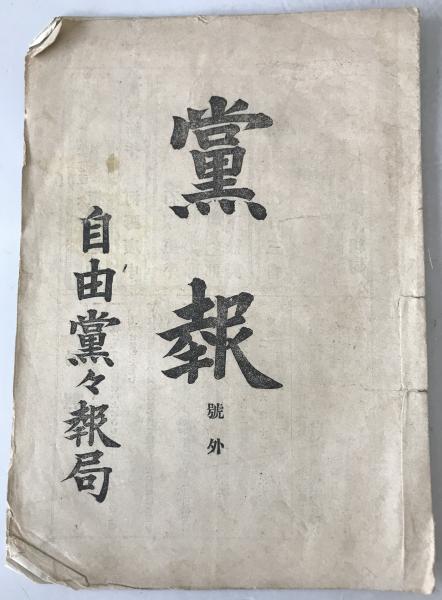 黨報
號外
自由黨々報局